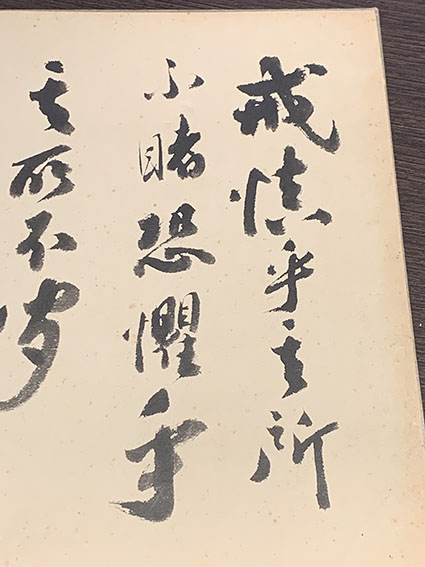 戒慎乎其所
不睹恐懼乎
其所不聞